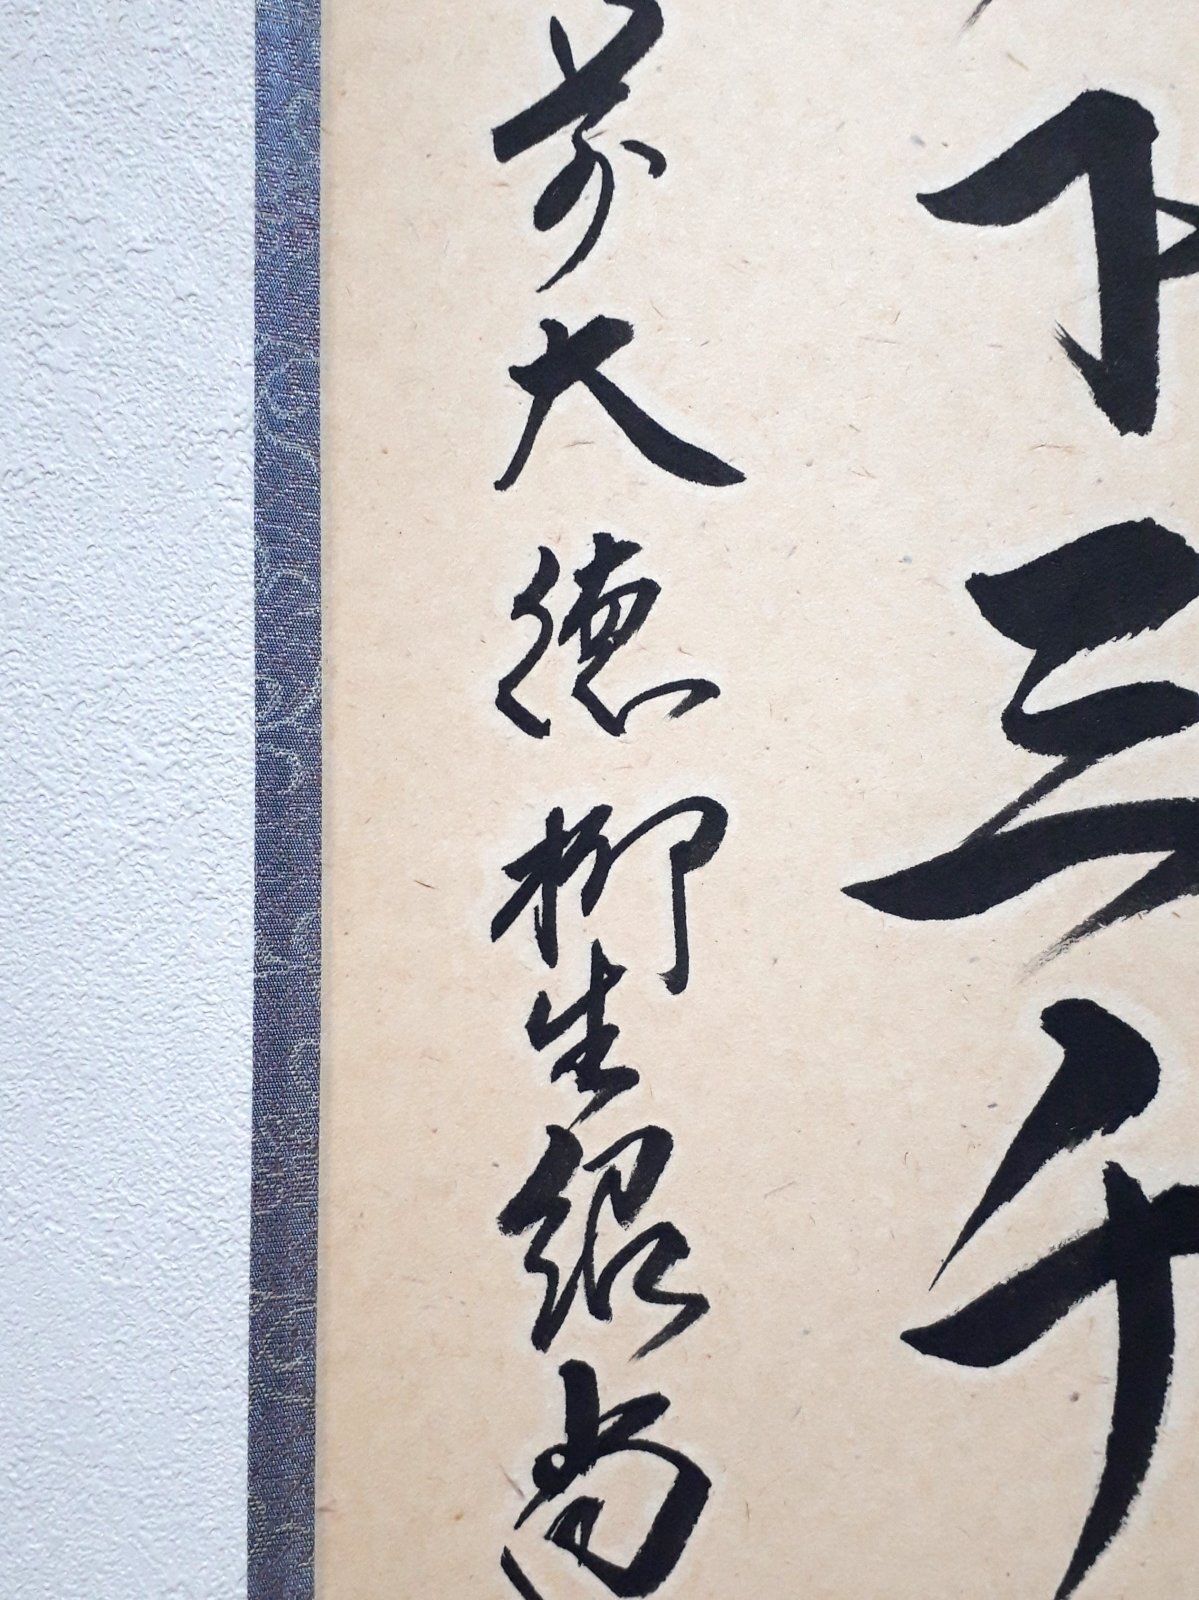 下三千
前大徳柳生紹尚